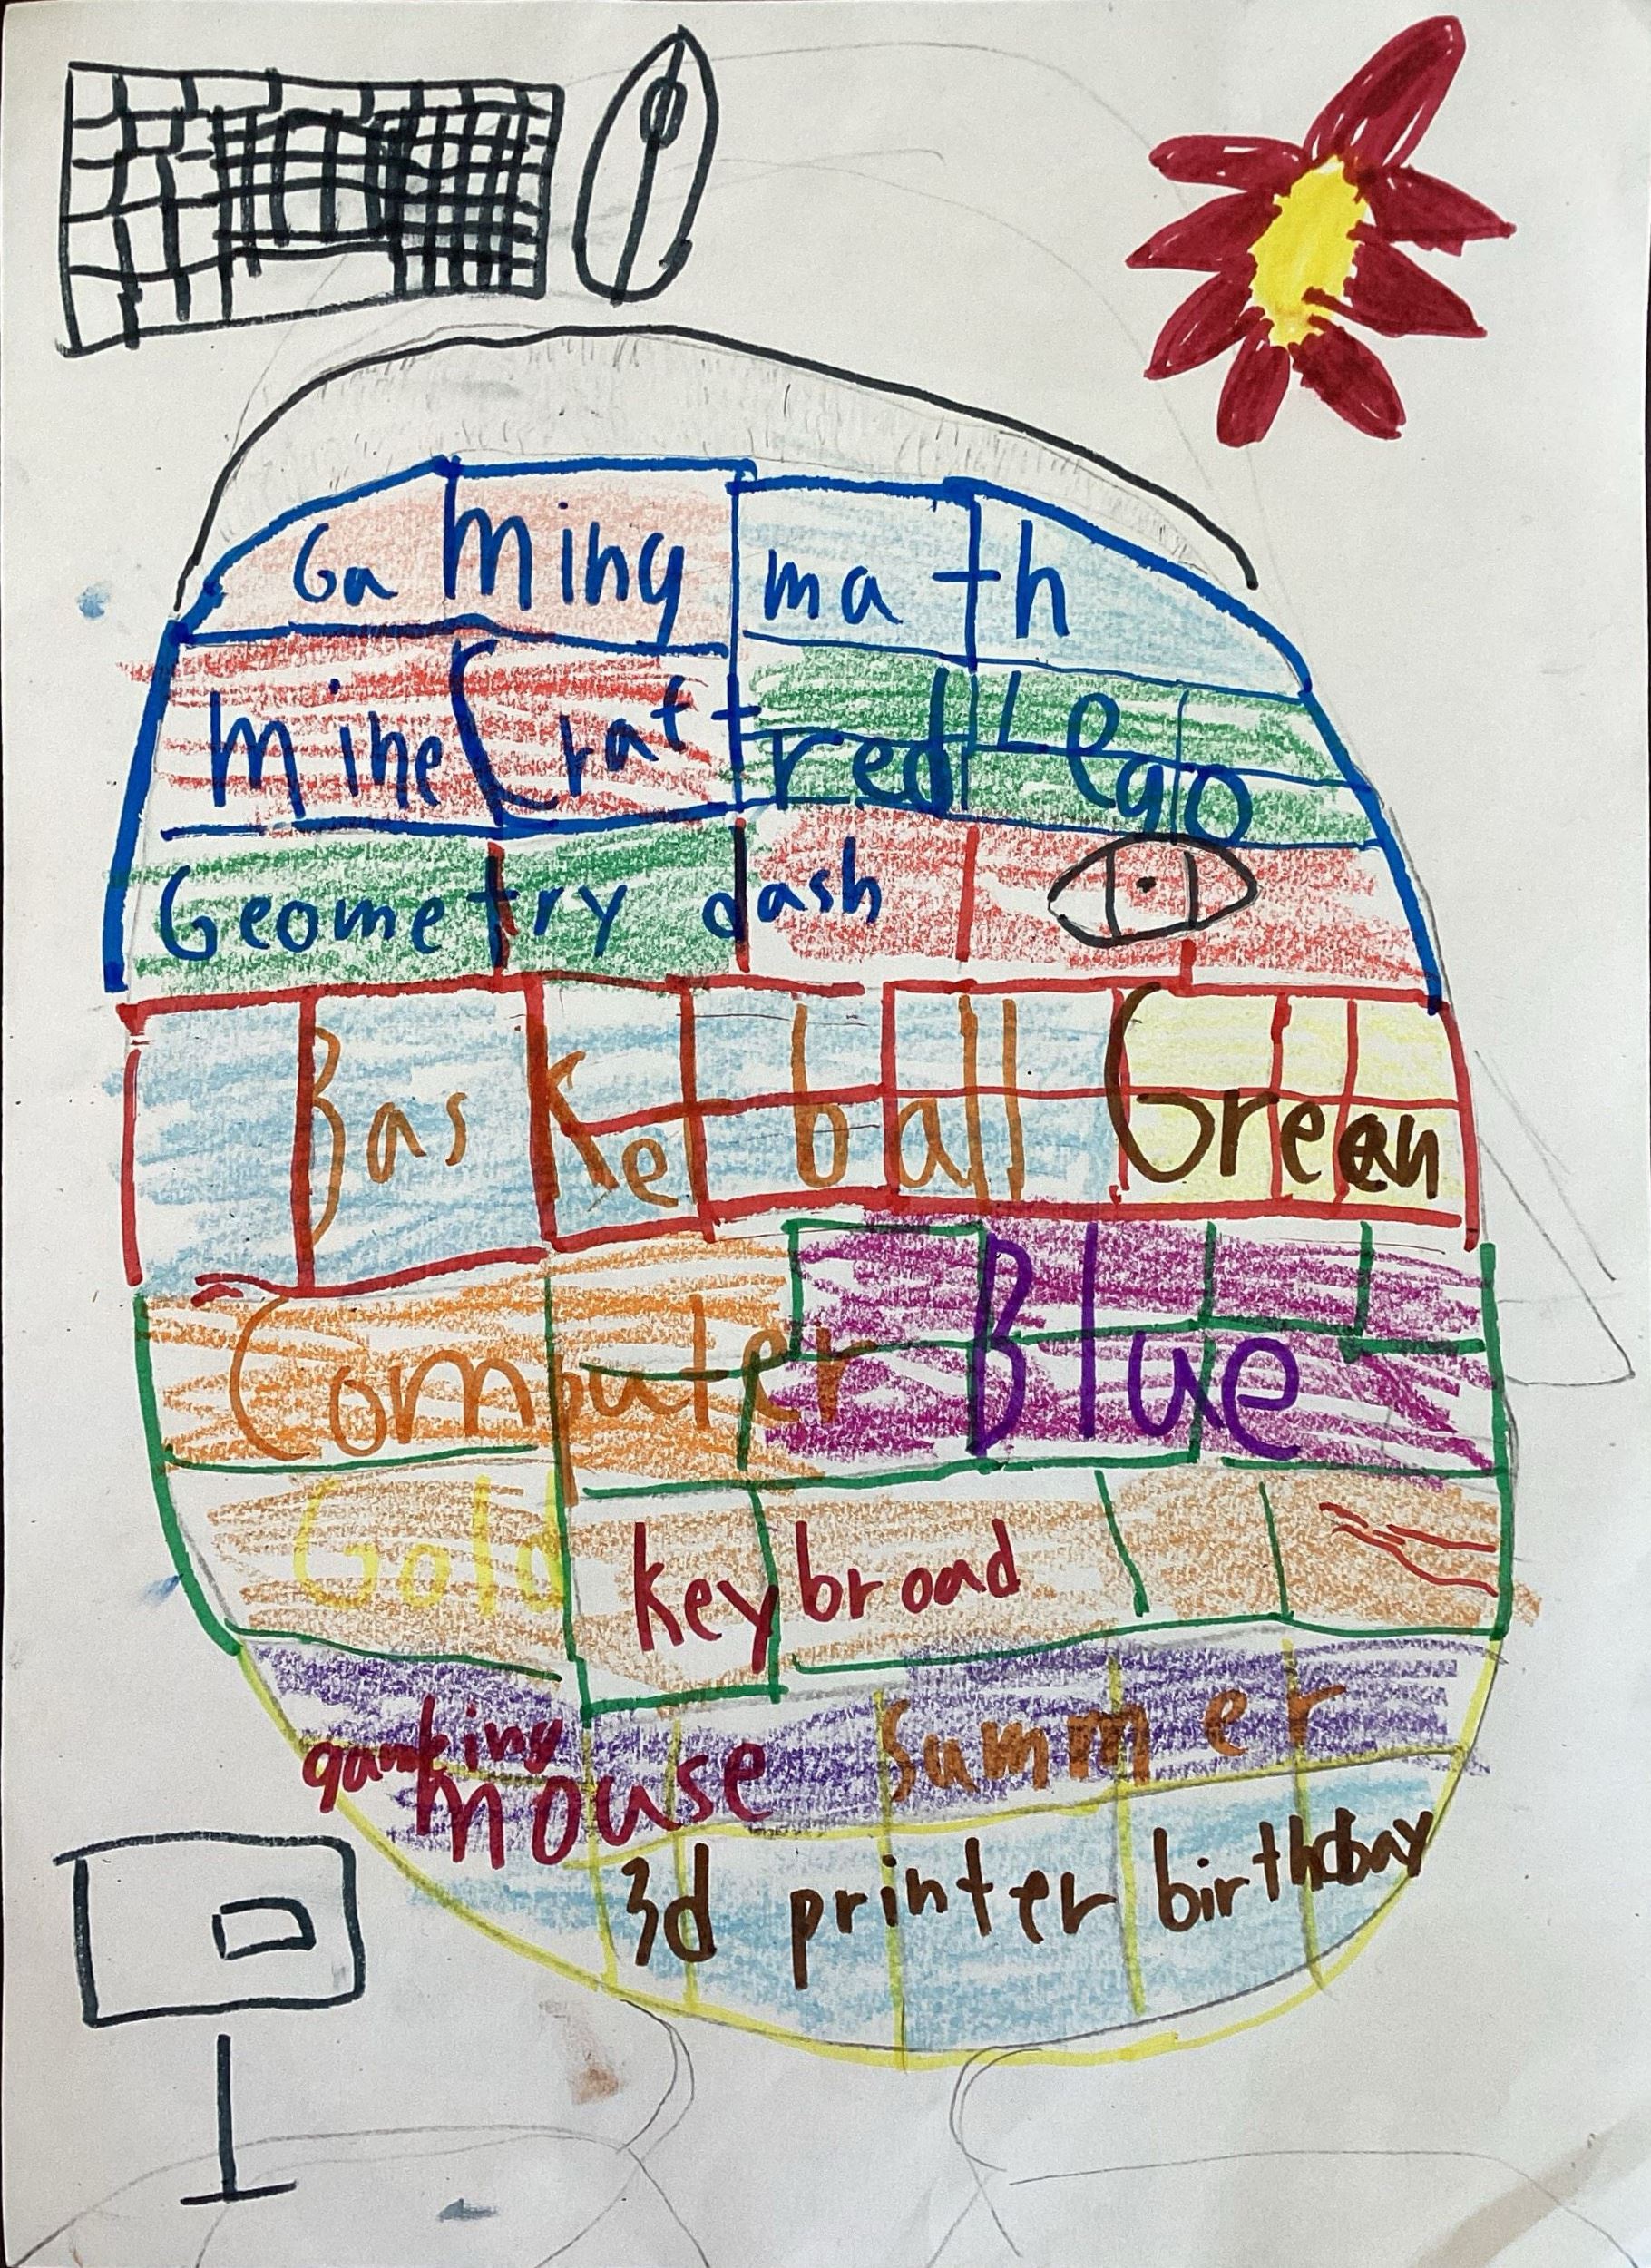 Gaming math
mineCraft red Lego
Geometry dash
BasKetball Green
Computer Blue
Gold keybroad
mouse Summer
3d printer birthday